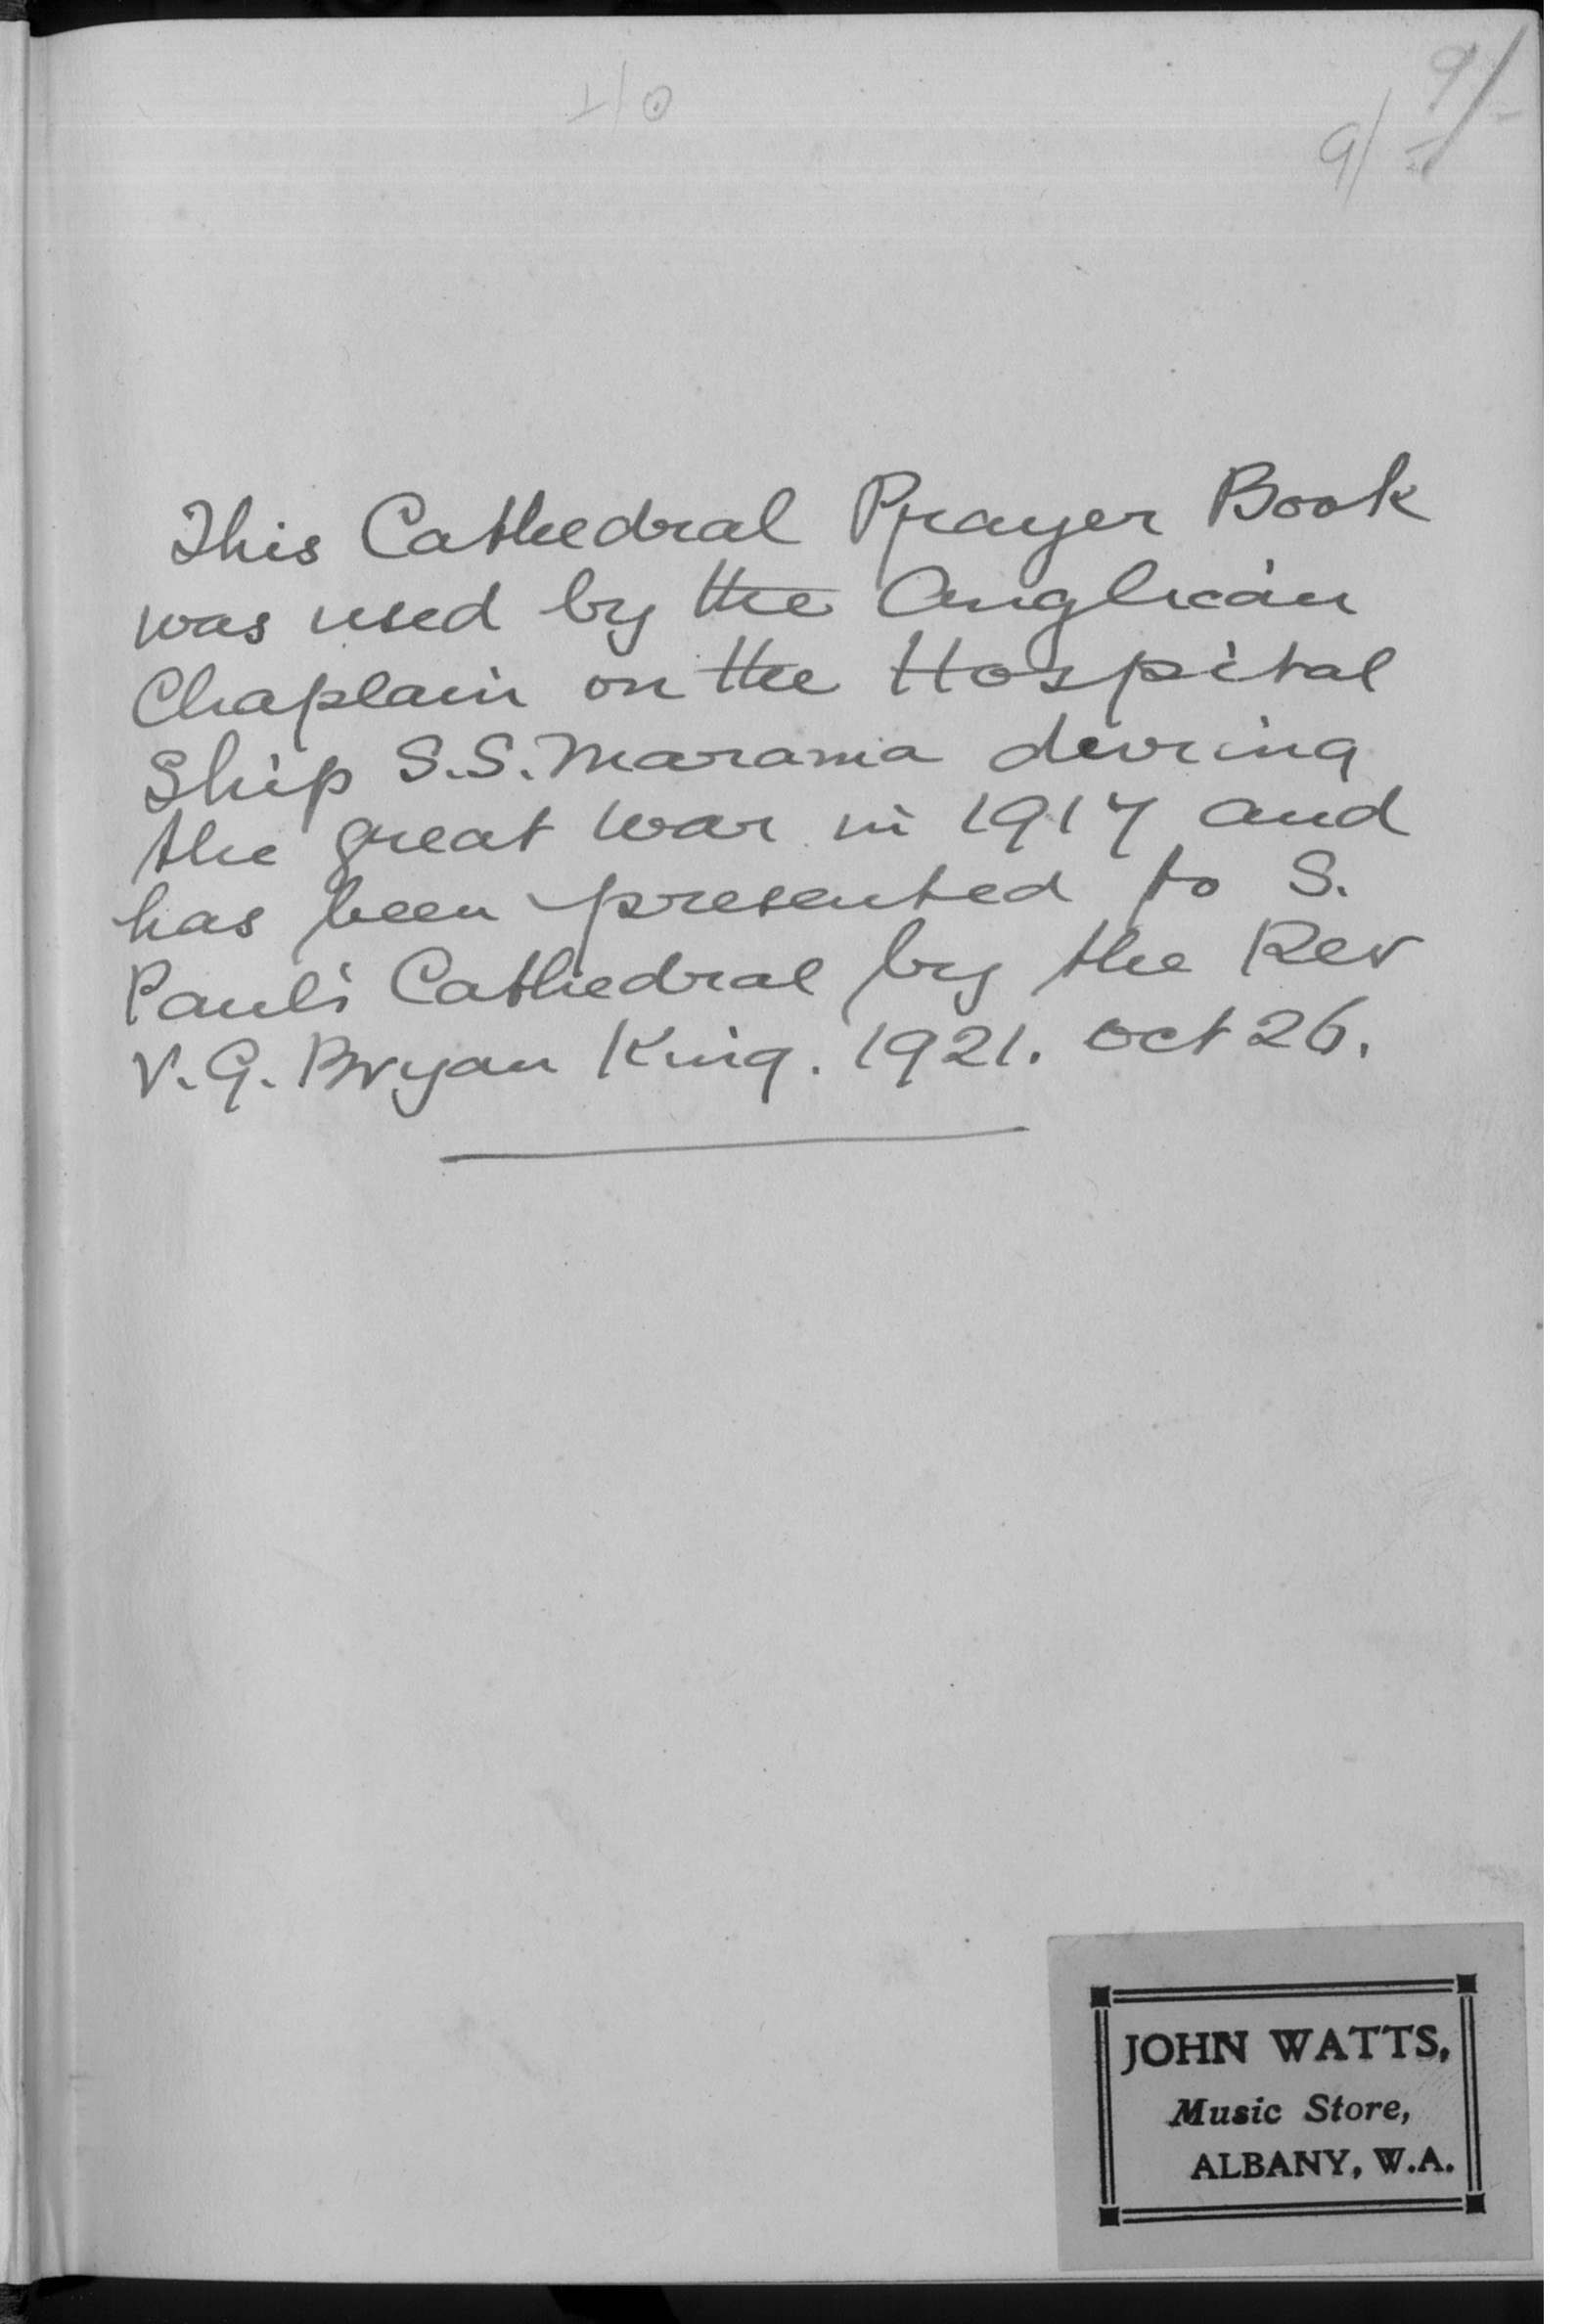 9/-
9/-
This Cathedral Prayer Book
was used by the Anglican
Chaplain on the Hospital
Ship S.S. Marama during
the great war in 1917 and
has been presented to S.
Paul's Cathedral by the Rev
V. G. Bryan King. 1921. Oct 26.
JOHN WATTS,
Music Store,
ALBANY, W.A.